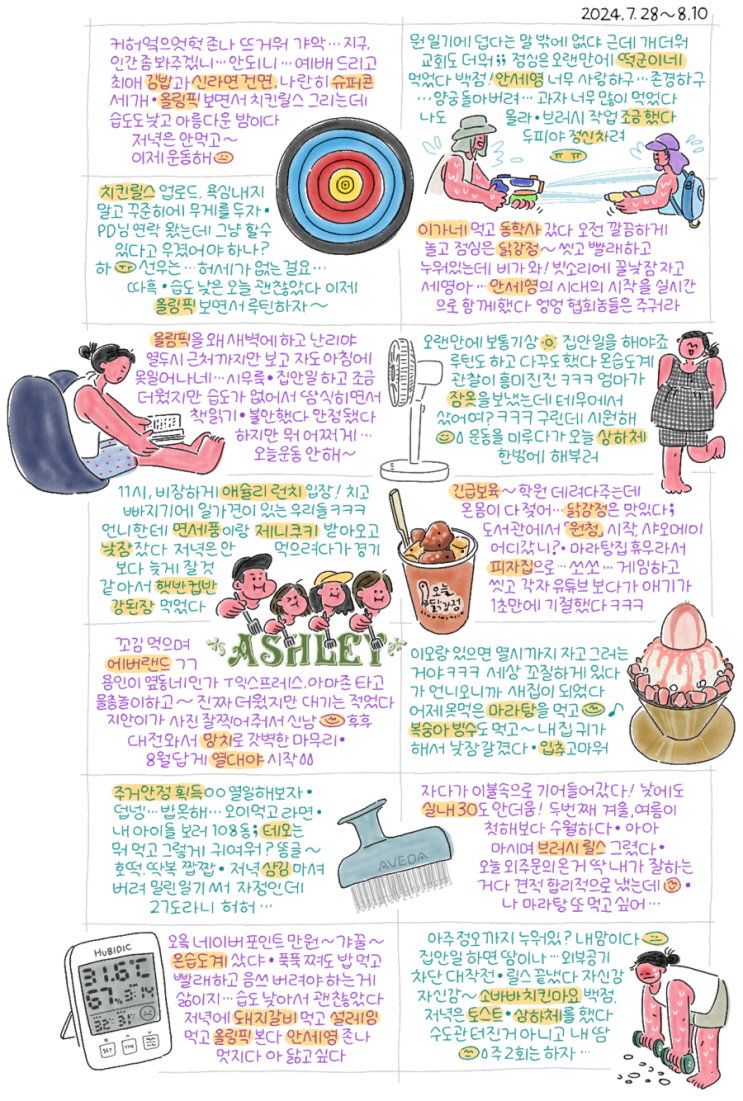 2024.7.28~8.10
커허억으엇헉 존나 뜨거워 갸악… 지구,
인간 좀 봐주겠니… 안되니… 예배 드리고
최애 김밥과 신라면 건면, 나란히 슈퍼콘
세개•올림픽 보면서 치킨릴스 그리는데
습도도 낮고 아름다운 밤이다
저녁은 안먹고~
이제 운동해
뭔 일기에 덥다는 말 밖에 없냐 근데 개더워
교회도 더워;; 점심은 오랜만에 떡군이네
먹었다 백점! 안세영 너무 사랑하구…존경하구
…양궁 돌아버려… 과자 너무 많이 먹었다
나도 몰라•브러시 작업 조금 했다
두피야 정신차려
ㅠㅠ
치킨릴스 업로드, 욕심내지
말고 꾸준히에 무게를 두자•
PD님 연락 왔는데 그냥 할수
있다고 우겼어야 하나?
하 ㅠㅠ 선우는…허세가 없는걸요…
따흑•습도 낮은 오늘 괜찮았다 이제
올림픽 보면서 루틴하자~
이가네 먹고 동학사 갔다 오전 깔끔하게
놀고 점심은 닭강정~ 씻고 빨래하고
누워있는데 비가 와! 빗소리에 꿀낮잠 자고
세영아…안세영의 시대의 시작을 실시간
으로 함께했다 엉엉 협회놈들은 주거라
올림픽을 왜 새벽에 하고 난리야
열두시 근처까지만 보고 자도 아침에
못일어나네…시무룩•집안일 하고 조금
더웠지만 습도가 없어서 땀 식히면서
책읽기•불안했다 안정됐다
하지만 뭐 어쩌게…
오늘운동 안해~
오랜만에 보통기상 집안일을 해야죠
루틴도 하고 다꾸도 했다 온습도계
관찰이 흥미진진 ㅋㅋㅋ 엄마가
잠옷을 보냈는데 테무에서
샀어여? ㅋㅋㅋㅋ 구린데 시원해
운동을 미루다가 오늘 상하체
한방에 해부러
11시, 비장하게 애슐리 런치 입장! 치고
빠지기에 일가견이 있는 우리들 ㅋㅋㅋ
언니한테 면세품이랑 제니쿠키 받아오고
낮잠 잤다 저녁은 안 먹으려다가 경기
보다 늦게 잘 것
같아서 햇반컵반
강된장 먹었다
ASHLEY
긴급보육~ 학원 데려다주는데
온몸이 다 젖어…닭강정은 맛있다;
도서관에서 「원청」 시작, 샤오메이
어디갔니?•마라탕집 휴무라서
피자집으로…쏘쏘…게임하고
씻고 각자 유튜브 보다가 얘기가
1초만에 기절했다 ㅋㅋㅋ
오늘
닭강정
꼬김 먹으며
에버랜드 ㄱㄱ
용인이 옆동네인가 T익스프레스, 아마존 타고
물총놀이하고~ 진짜 더웠지만 대기는 적었다
지안이가 사진 잘찍어줘서 신남 후후
대전와서 망치로 갓벽한 마무리•
8월답게 열대야 시작
이모랑 있으면 열시까지 자고 그러는
거야 ㅋㅋㅋ 세상 꼬질하게 있다
가 언니오니까 새집이 되었다
어제 못먹은 마라탕을 먹고 ♪
복숭아 빙수도 먹고~ 내 집 귀가
해서 낮잠 갈겼다•입추 고마워
주거안정 획득 열일해보자•
덥넹…밥못해…오이먹고 라면•
내 아이돌 보러 108동; 테오는
뭐 먹고 그렇게 귀여워? 똥글~
호떡, 떡볶 짭짭•저녁 삼김 마셔
버려 밀린일기 써서 자정인데
27도라니 허허…
AVEDA
자다가 이불속으로 기어들어갔다! 낮에도
실내 30도 안더움! 두번째 겨울, 여름이
첫해보다 수월하다•아아
마시며 브러시릴스 그렸다•
오늘 외주문의 온거 딱 내가 잘하는
거다 견적 합리적으로 냈는데•
나 마라탕 또 먹고 싶어…
오옥 네이버 포인트 만원~ 갸꿀~
온습도계 샀다•푹푹 쪄도 밥 먹고
빨래하고 음쓰 버려야 하는게
삶이지…습도 낮아서 괜찮았다
저녁에 돼지갈비 먹고 설레임
먹고 올림픽 본다 안세영 존나
멋지다 아 닮고싶다
HuBiDiC
31.6℃
67%
SET
아주 정오까지 누워있? 내맘이다
집안일 하면 땀이나…외부공기
차단 대작전•릴스 끝냈다 자신감
자신감~ 소바바치킨마요 백점,
저녁은 토스트•상하체를 했다
수도관 터진거 아니고 내 땀
주2회는 하자…